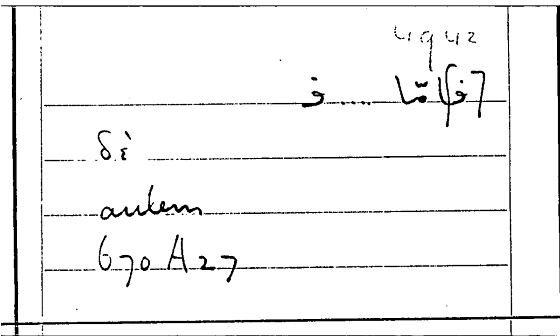 4942
[ف]أمّا ..... ف
δὲ
autem
670 A 27